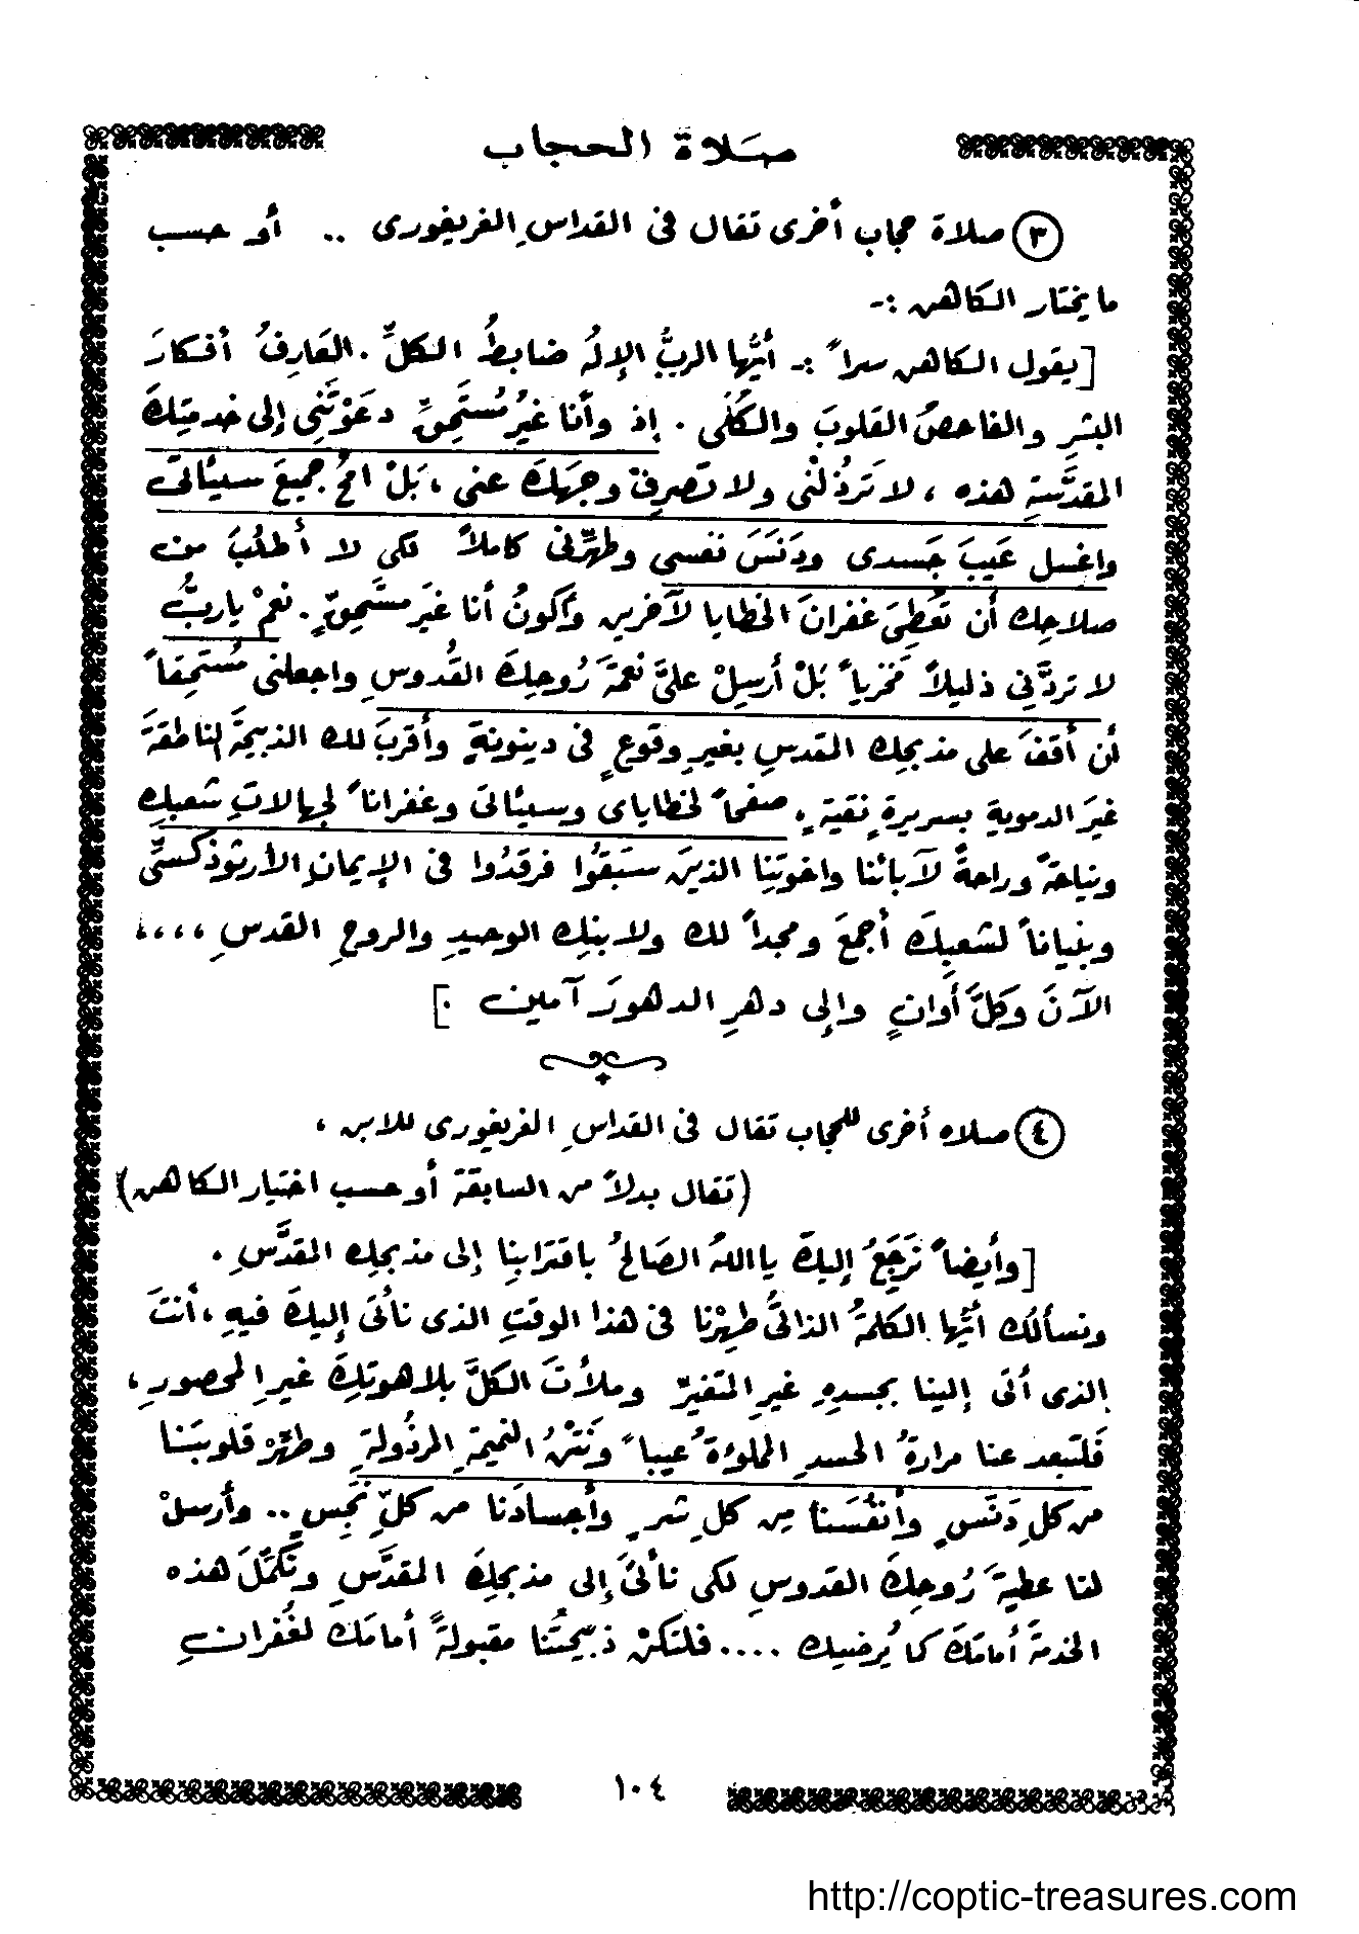 صلاة الحجاب
(٣) صلاة حجاب أخرى تقال فى القداسِ الغريغورى .. أو حسب
ما يختار الكاهن :-
[يقول الكاهن سراً :- أيُّها الربُّ الإلهُ ضابطُ الكلِّ . العَارِفُ أفكارَ
البشرِ والفاحصُ القلوبَ والكُلَى . إذ وأنا غيرُ مُستَحِقٍّ دعَوْتَنِى إلى خدمتِكَ
المقدَّسةِ هذه ، لا تَرذُلْنى ولا تصرفْ وجهَكَ عنى ، بَلْ امْحُ جميعَ سيئاتى
واغسل عَيبَ جَسدى ودَنَسَ نفسى وطهِّرنى كاملاً لكى لا أطلُبَ من
صلاحِك أن تُعْطِىَ غفرانَ الخطايا لآخرين وأكونُ أنا غيَر مستَحِقٍّ . نعمْ ياربُّ
لا تردَّنى ذليلاً مَخزياً بَلْ أرسِلْ علىَّ نعمَةَ رُوحِكَ القُدوسِ واجعلنى مُستَحِقاً
أن أقفَ على مذبحِك المقدسِ بغيرِ وقوعٍ فى دينونةٍ وأقربَ لك الذبيحةَ الناطقةَ
غيَر الدمويةِ بسريرةٍ نقيةٍ . صفحاً لخطاياى وسيئاتى وغفراناً لجهالاتِ شعبِك
ونياحةً وراحةً لآبائنا واخوتِنا الذينَ سبَقُوا فرقدُوا فى الإيمانِ الأرثوذكسىِّ
وبنياناً لشعبِكَ أجمعَ ومجداً لك ولابنِك الوحيدِ والروحِ القدسِ ،،،،
الآنَ وكلَّ أوانٍ وإلى دهرِ الدهورَ آمين .]
(٤) صلاه أخرى للحجاب تقال فى القداسِ الغريغورى للابن ،
(تقال بدلاً من السابقة أو حسب اختيار الكاهن)
[وأيضاً نَرجَعُ إليكَ يااللهُ الصَالحُ باقترابِنا إلى مذبحِك المقدَّسِ .
ونسألُك أيُّها الكلمةُ الذاتىُّ طهِرْنا فى هذا الوقتِ الذى نأتى إليكَ فيهِ ، أنتَ
الذى أتى إلينا بجسدِهِ غيرِ المتغيّرِ وملأتَ الكلَّ بلاهوتِكَ غيرِ المحصورِ ،
فَلتبعد عنا مرارةُ الحسدِ المملوءةُ عيباً ونَتْنُ النميمةِ المرذُولةِ وطهِّرْ قلوبَنا
من كلِ دَنَسٍ وأنفُسَنا مِن كلِ شرٍ وأجسادَنا من كلِّ نَجَسٍ .. وأرسِلْ
لنا عطيةَ رُوحِكَ القدوسِ لكى نأتىَ إلى مذبحِكَ المقدَّسِ ونكمِّلَ هذه
الخدمةَ أمامَكَ كما يُرضيك .... فلتكنْ ذبيحتُنا مقبولةً أمامَك لغُفرانِ
١٠٤
http://coptic-treasures.com